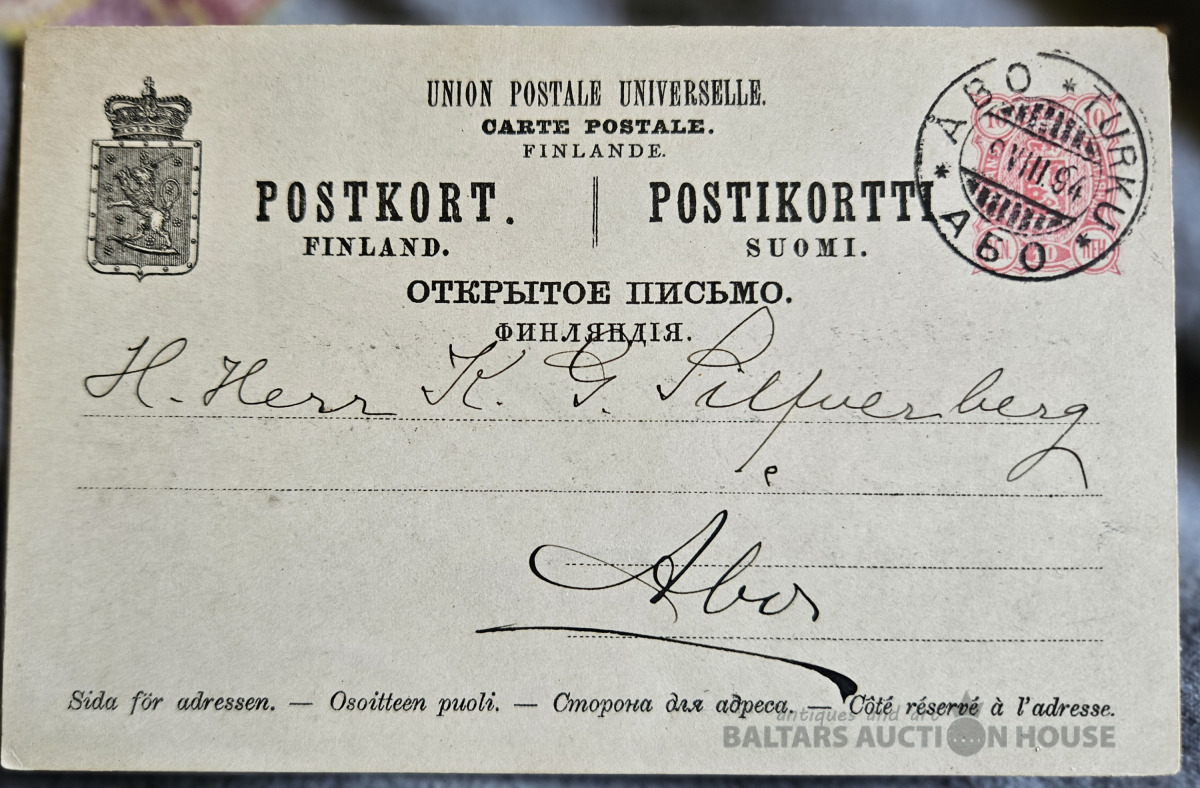 UNION POSTALE UNIVERSELLE.
CARTE POSTALE.
FINLANDE.
POSTKORT. POSTIKORTTI
FINLAND. SUOMI.
ОТКРЫТОЕ ПИСЬМО.
ФИНЛЯНДІЯ.
ÅBO * TURKU * АБО *
6 VIII.94
10 10
10 ПЕН
H. Herr K. G. Silfverberg
Åbo
Sida för adressen. — Osoitteen puoli. — Сторона для адреса. — Côté réservé à l'adresse.
antiques and art
BALTARS AUCTION HOUSE